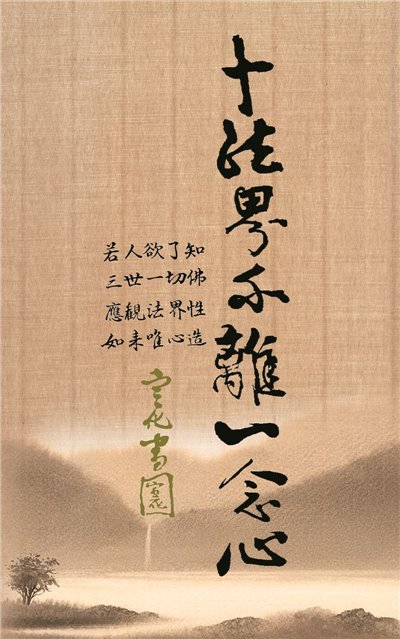 十法界不離一念心
若人欲了知
三世一切佛
應観法界性
如来唯心造
宣化書